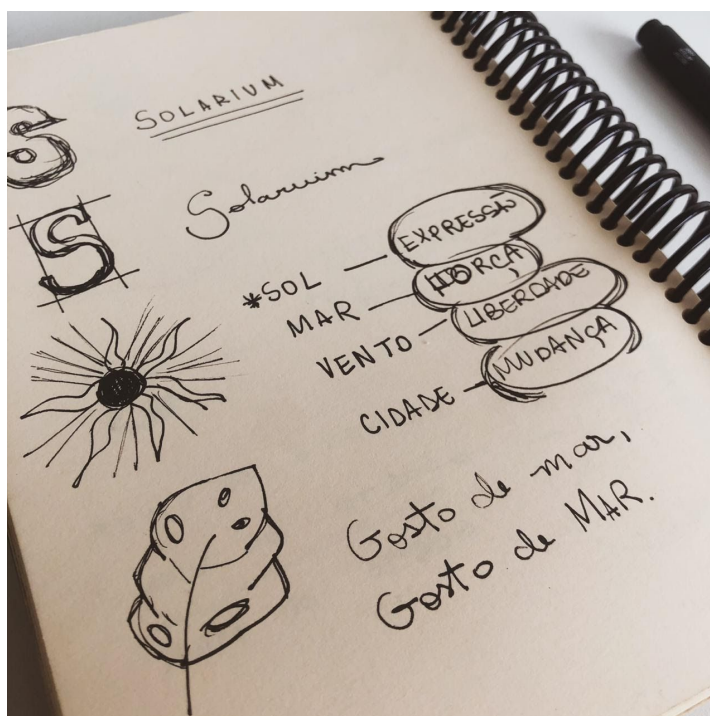 S
SOLARIUM
Solarium
S
*SOL — EXPRESSÃO
MAR — FORÇA
VENTO — LIBERDADE
CIDADE — MUDANÇA
Gosto de mar,
Gosto de MAR.